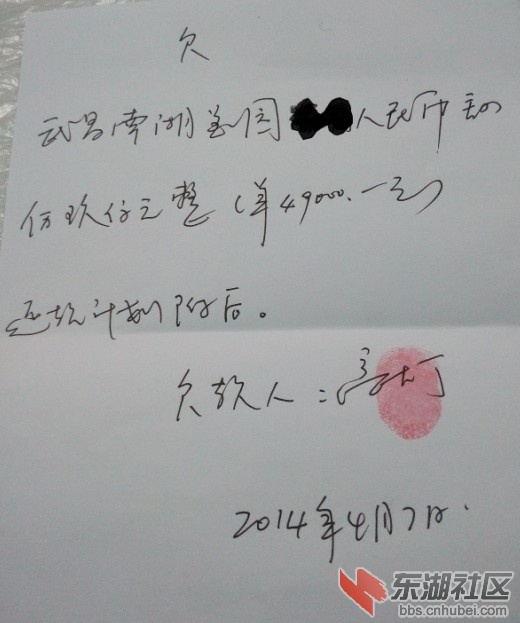 欠
武昌南湖花园 人民币肆
仟玖仟元整(¥49000.一元)
还款计划附后。
欠款人:
2014年4月7日.
东湖社区
bbs.cnhubei.com